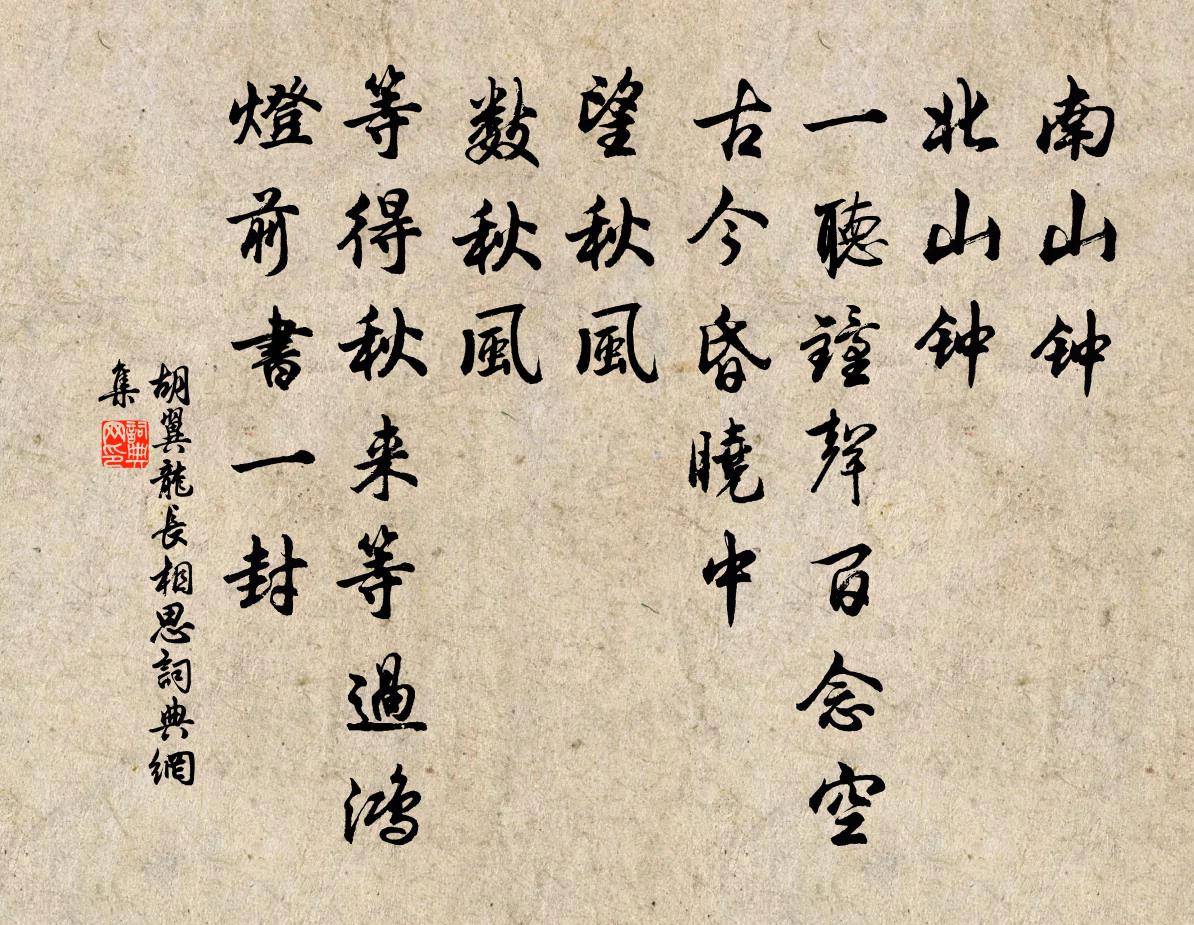 南山钟
北山钟
一聽鐘聲百念空
古今昏曉中
望秋風
数秋風
等得秋来等過鴻
燈前書一封
胡翼龍長相思詞典網
集
詞典网印